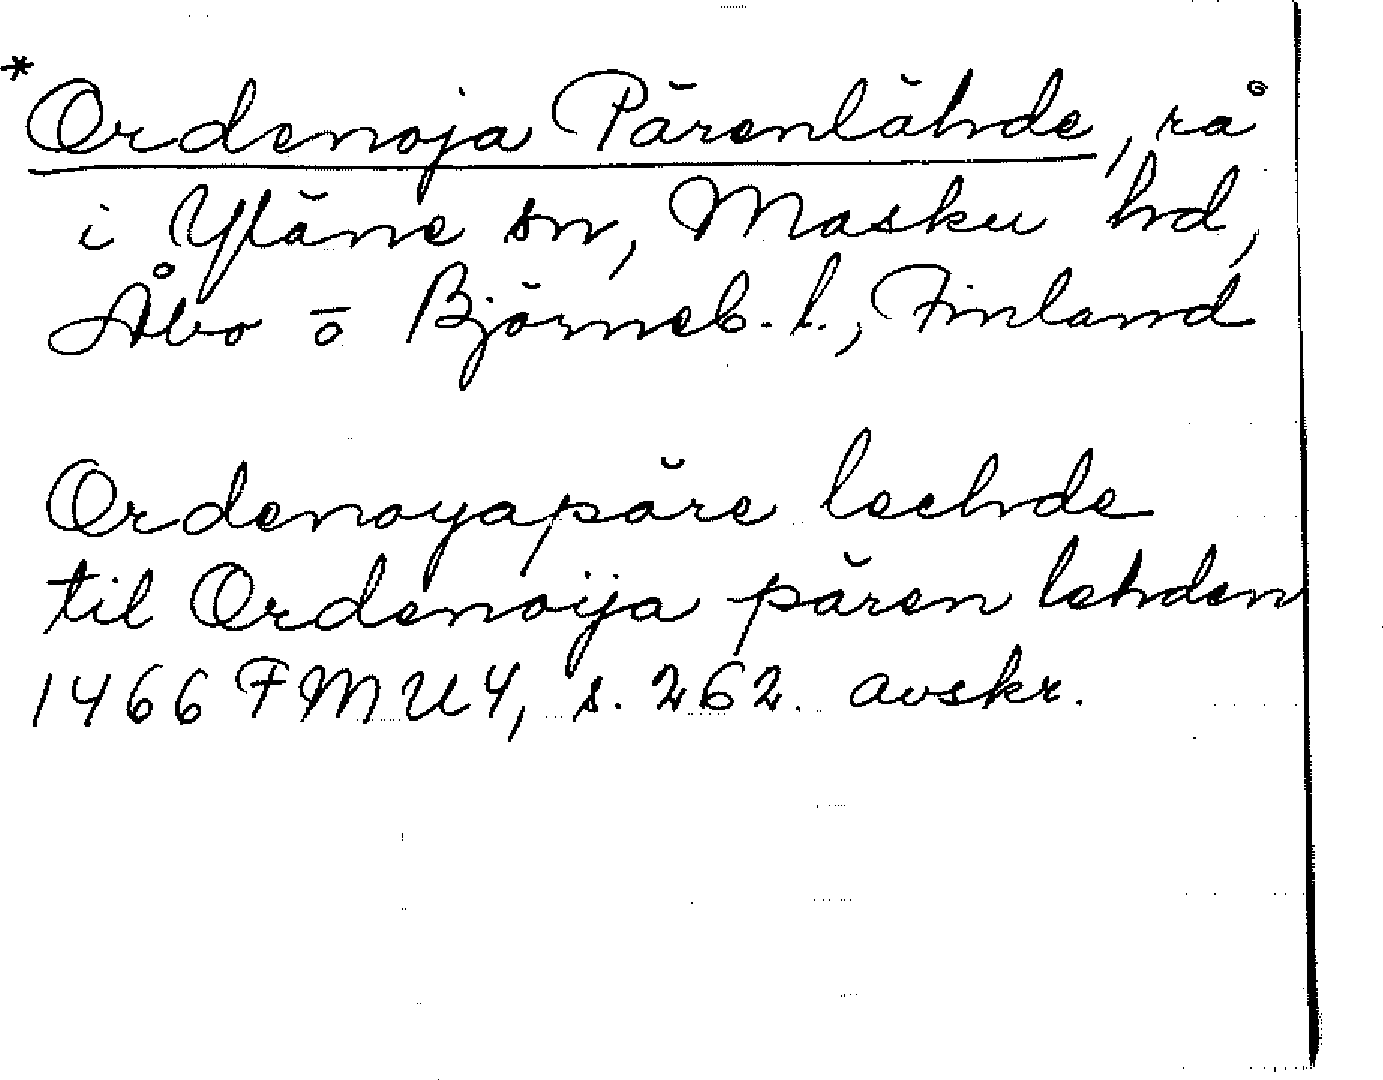 *Ordenoja Pärenlähde, rå
i Yläne sn, Masku hd,
Åbo o Björneb. l., Finland
Ordenoyapäre leehde
til Ordenoija pären lehden
1466 FMU4, s. 262. avskr.